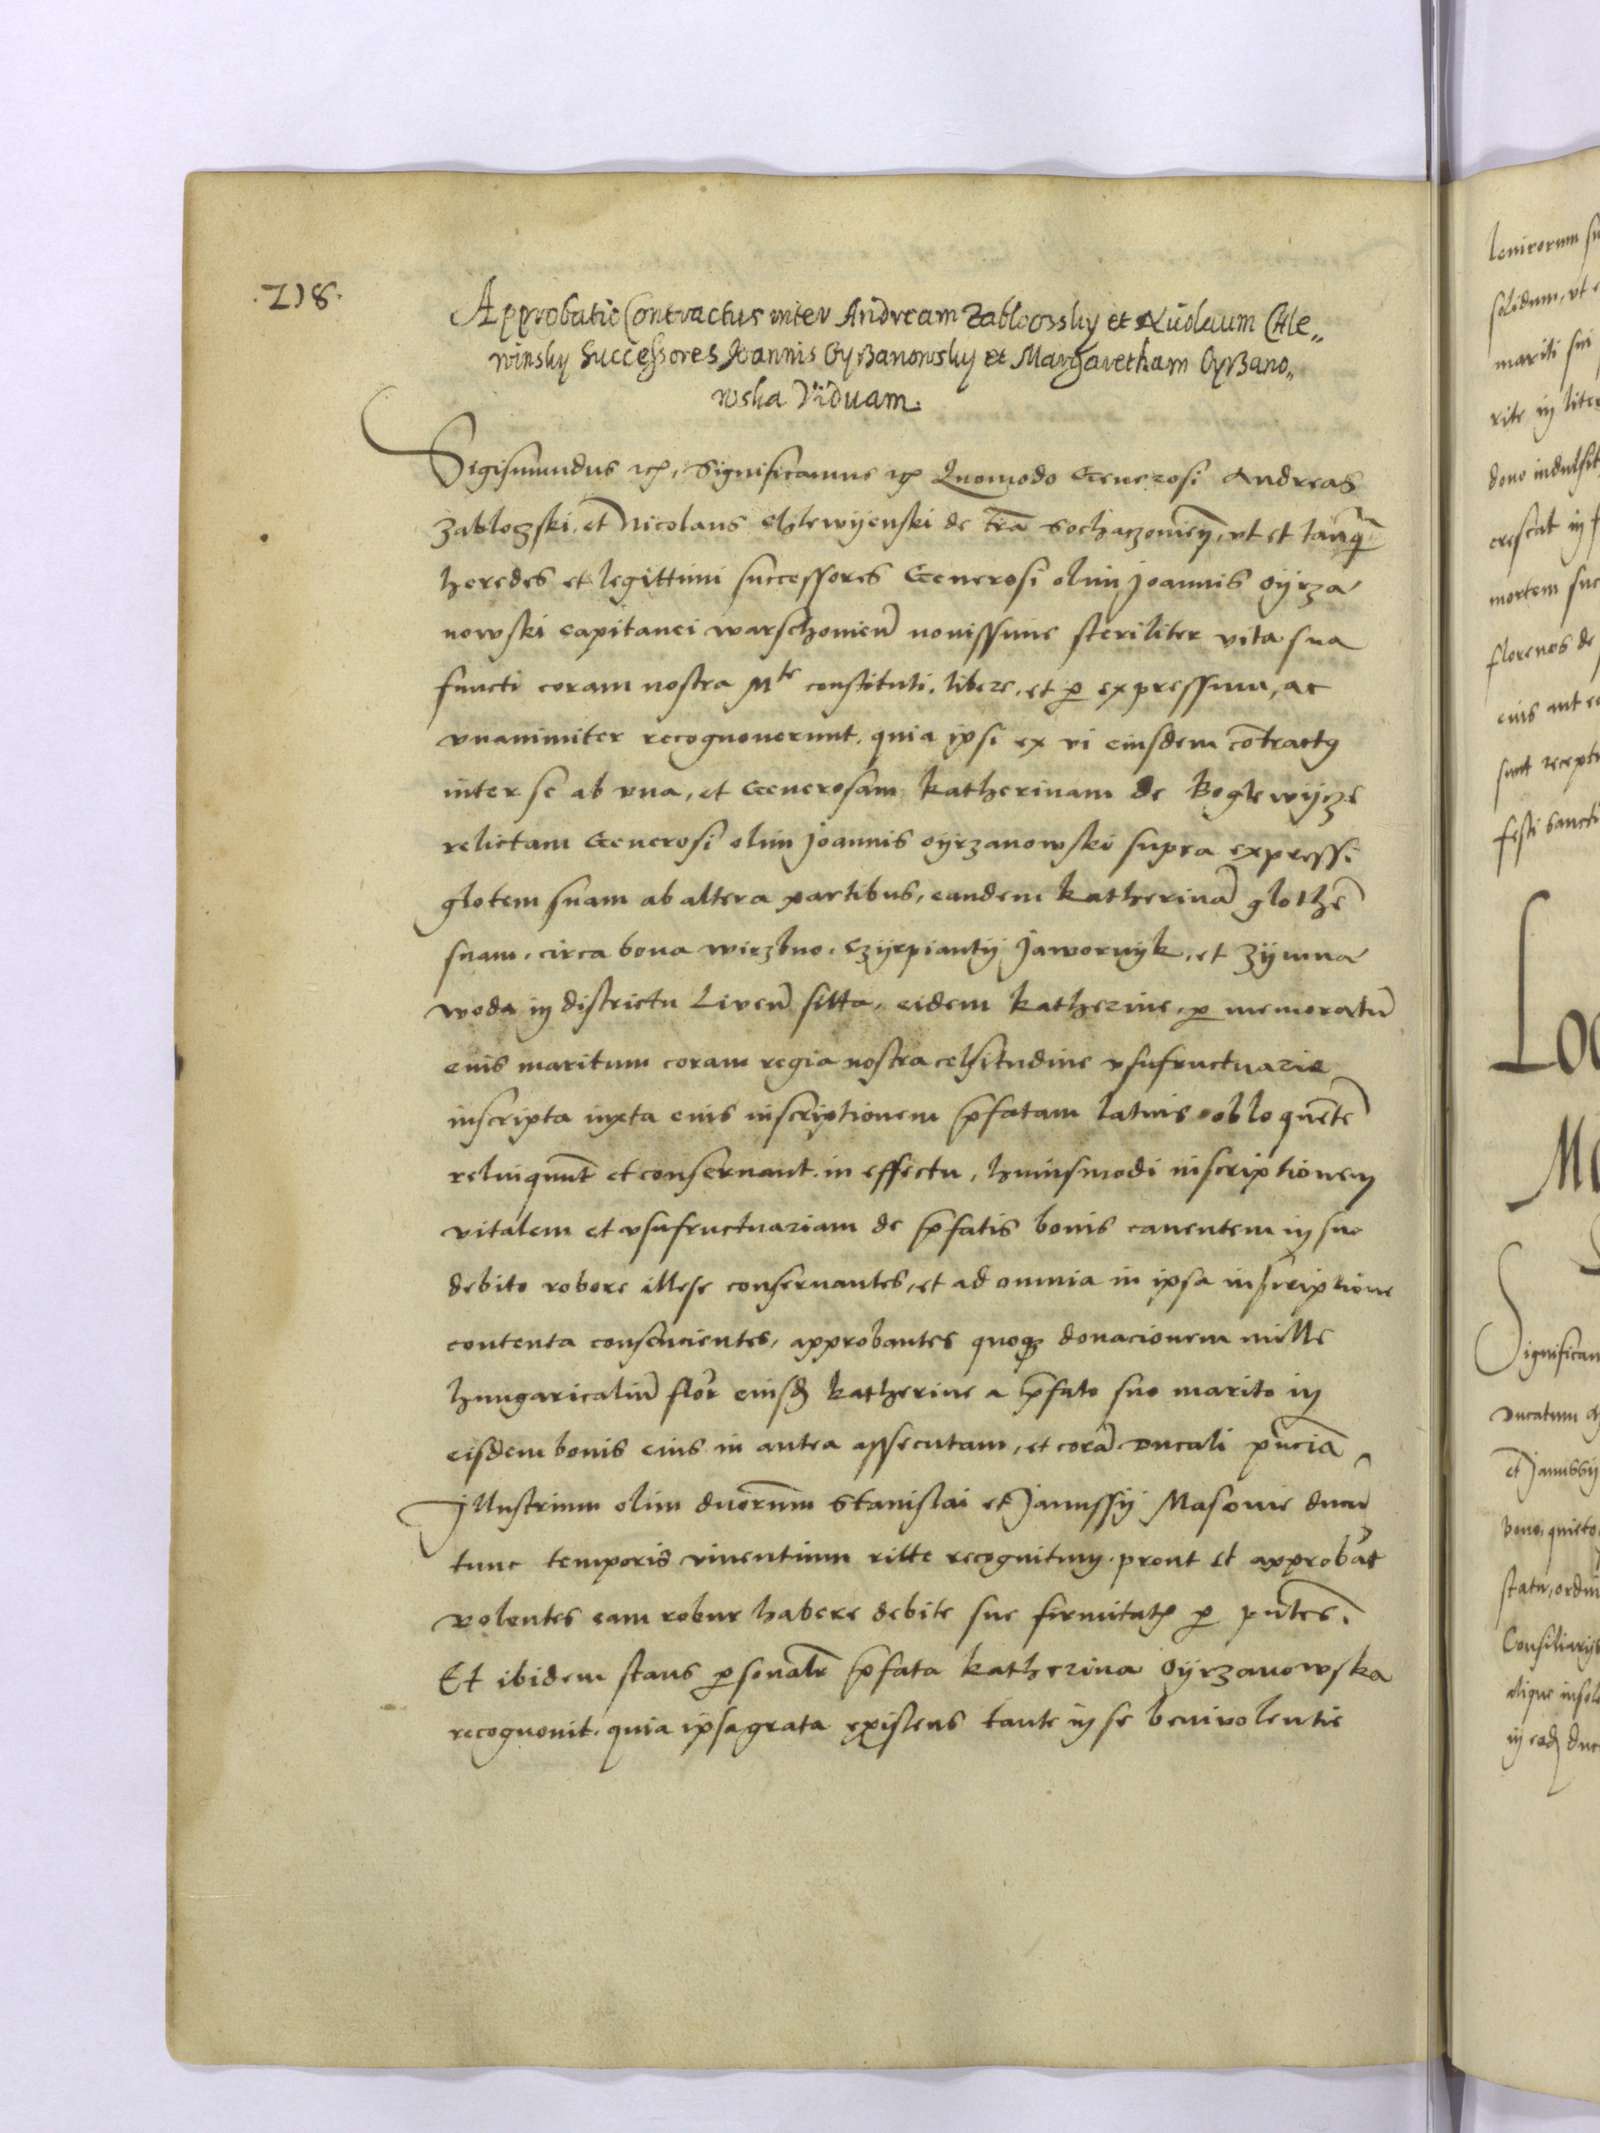 .218.
Approbatio Contractus inter Andream Zabloczsky et Nicolaum Chle„
winsky Successores Joannis Oyrzanowsky et Margaretham Oyrzano„
wska Viduam.
Segismundus etc, Significamus etc Quomodo Generosi Andreas
Zabloczski, et Nicolaus Chlewyenski de tra Sochaczoviens, ut et tanq
heredes et legittimi successores Generosi olim Joannis Oyrza
nowski capitanei warschovien novissime steriliter vita sua
functi coram nostra Mte constituti, libere, et p expressum, ac
unanimiter recognoverunt, quia ipsi ex vi eiusdem contractus
inter se ab una, et Generosam Katherinam de Boglewycze
relictam Generosi olim Joannis Oyrzanowski supra expressi
glotem suam ab altera partibus, eandem Katherinam glothem
suam, circa bona wirzbno, Czyrpianty Jawornyk, et Zymna
woda in districtu Liven sitta, eidem Katherine, p memoratum
eius maritum coram regia nostra celsitudine usufructuarie
inscripta iuxta eius inscriptionem pfatam latius obloquente
relinquunt et conservant in effectu, huiusmodi inscriptionem
vitalem et usufructuariam de pfatis bonis canentem in suo
debito robore illese conservantes, et ad omnia in ipsa inscriptione
contenta consencientes, approbantes quoq donacionem mille
hungaricalium flor eiusd Katherine a pfato suo marito in
eisdem bonis eius in antea assecutam, et coram ducali pncia
Illustrium olim duorum Stanislai et Janussy Masovie ducum
tunc temporis viventium ritte recognitum, prout et approbat
volentes eam robur habere debite sue firmitatis p pntes.
Et ibidem stans psonalr pfata Katherina Oyrzanowska
recognovit, quia ipsa grata existens tante in se benivolentie